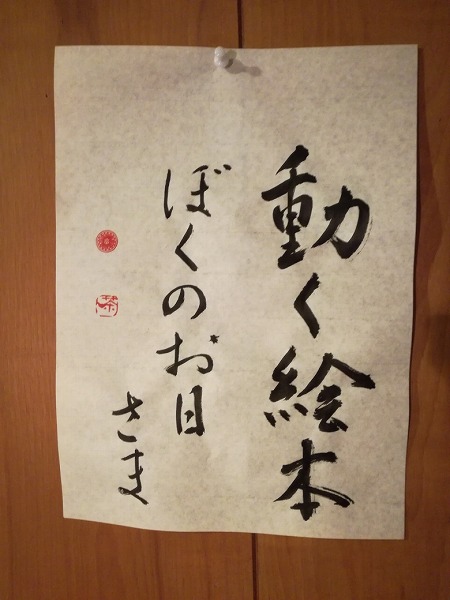 動く絵本
ぼくのお目
さま